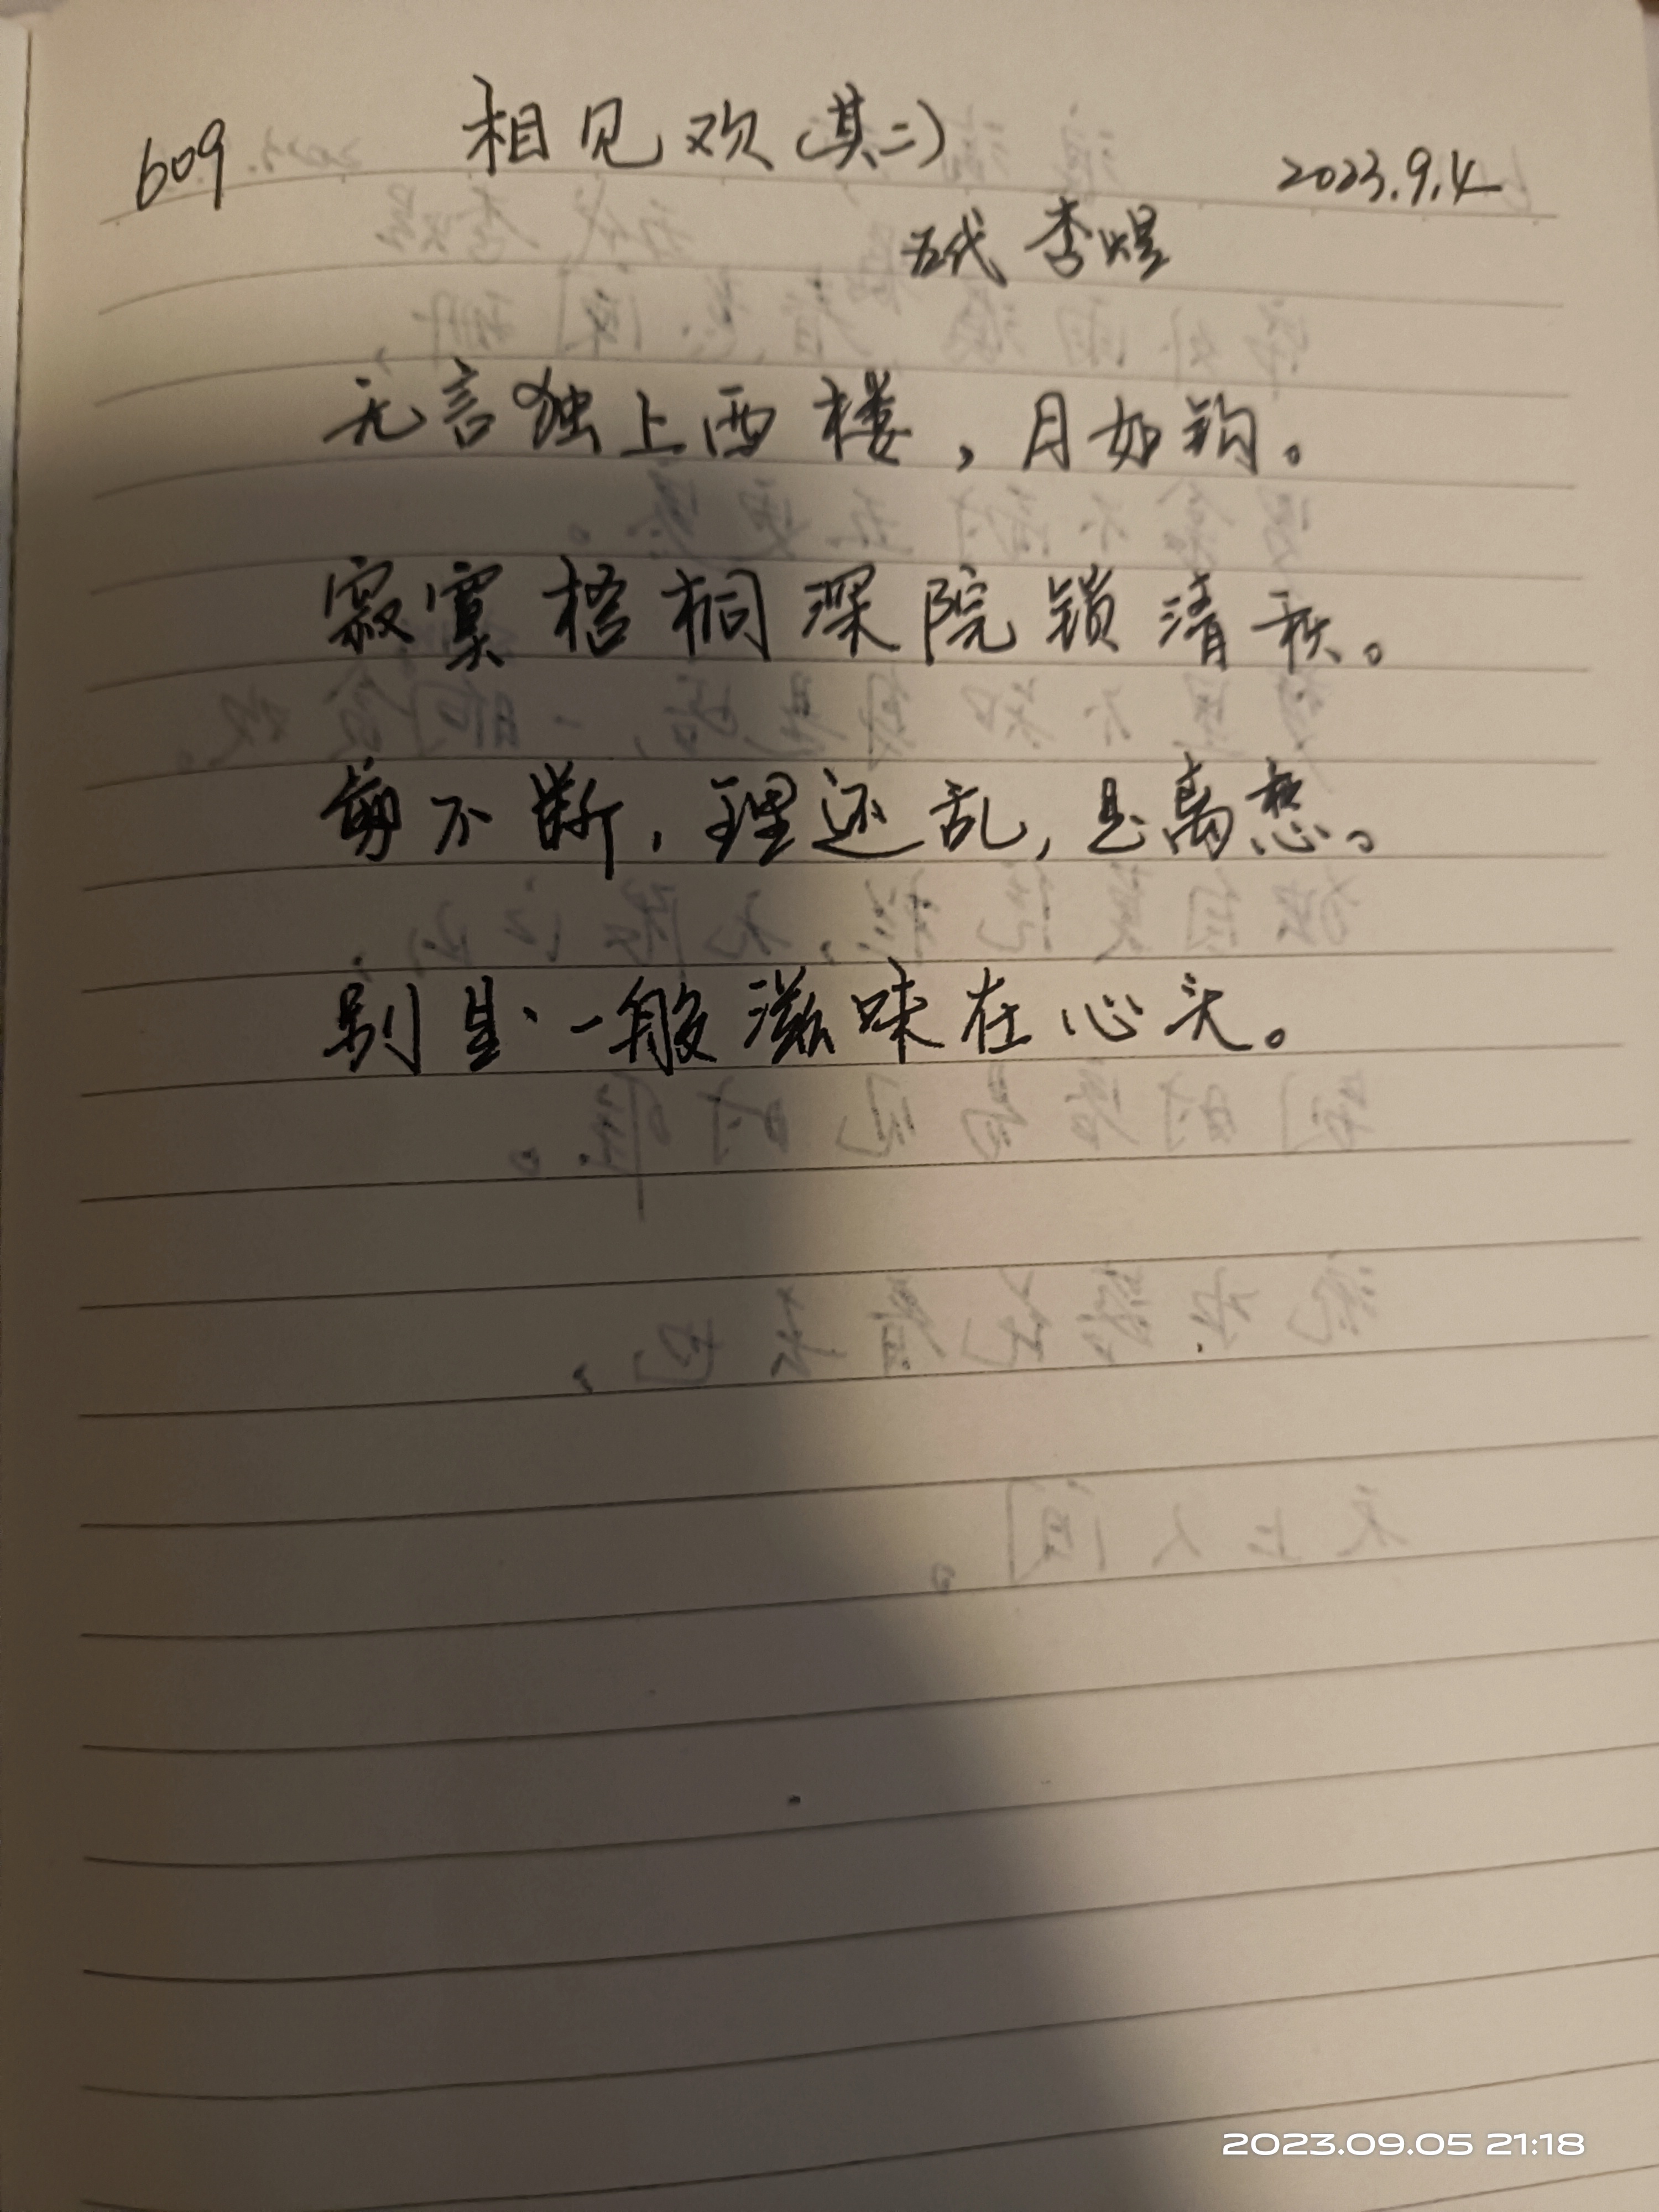 609 相见欢(其二) 2023.9.4
五代 李煜
无言独上西楼，月如钩。
寂寞梧桐深院锁清秋。
剪不断，理还乱，是离愁。
别是一般滋味在心头。
2023.09.05 21:18